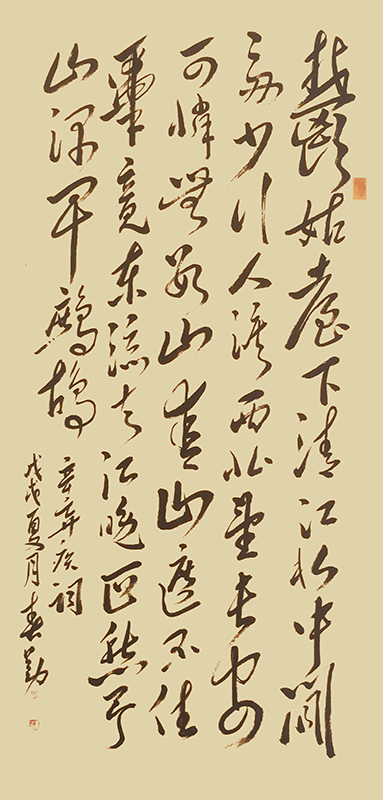 鬱孤臺下清江水中間
多少行人淚西北望長安
可憐無數山青山遮不住
畢竟東流去江晚正愁予
山深聞鷓鴣
辛弃疾詞
戊戌夏月